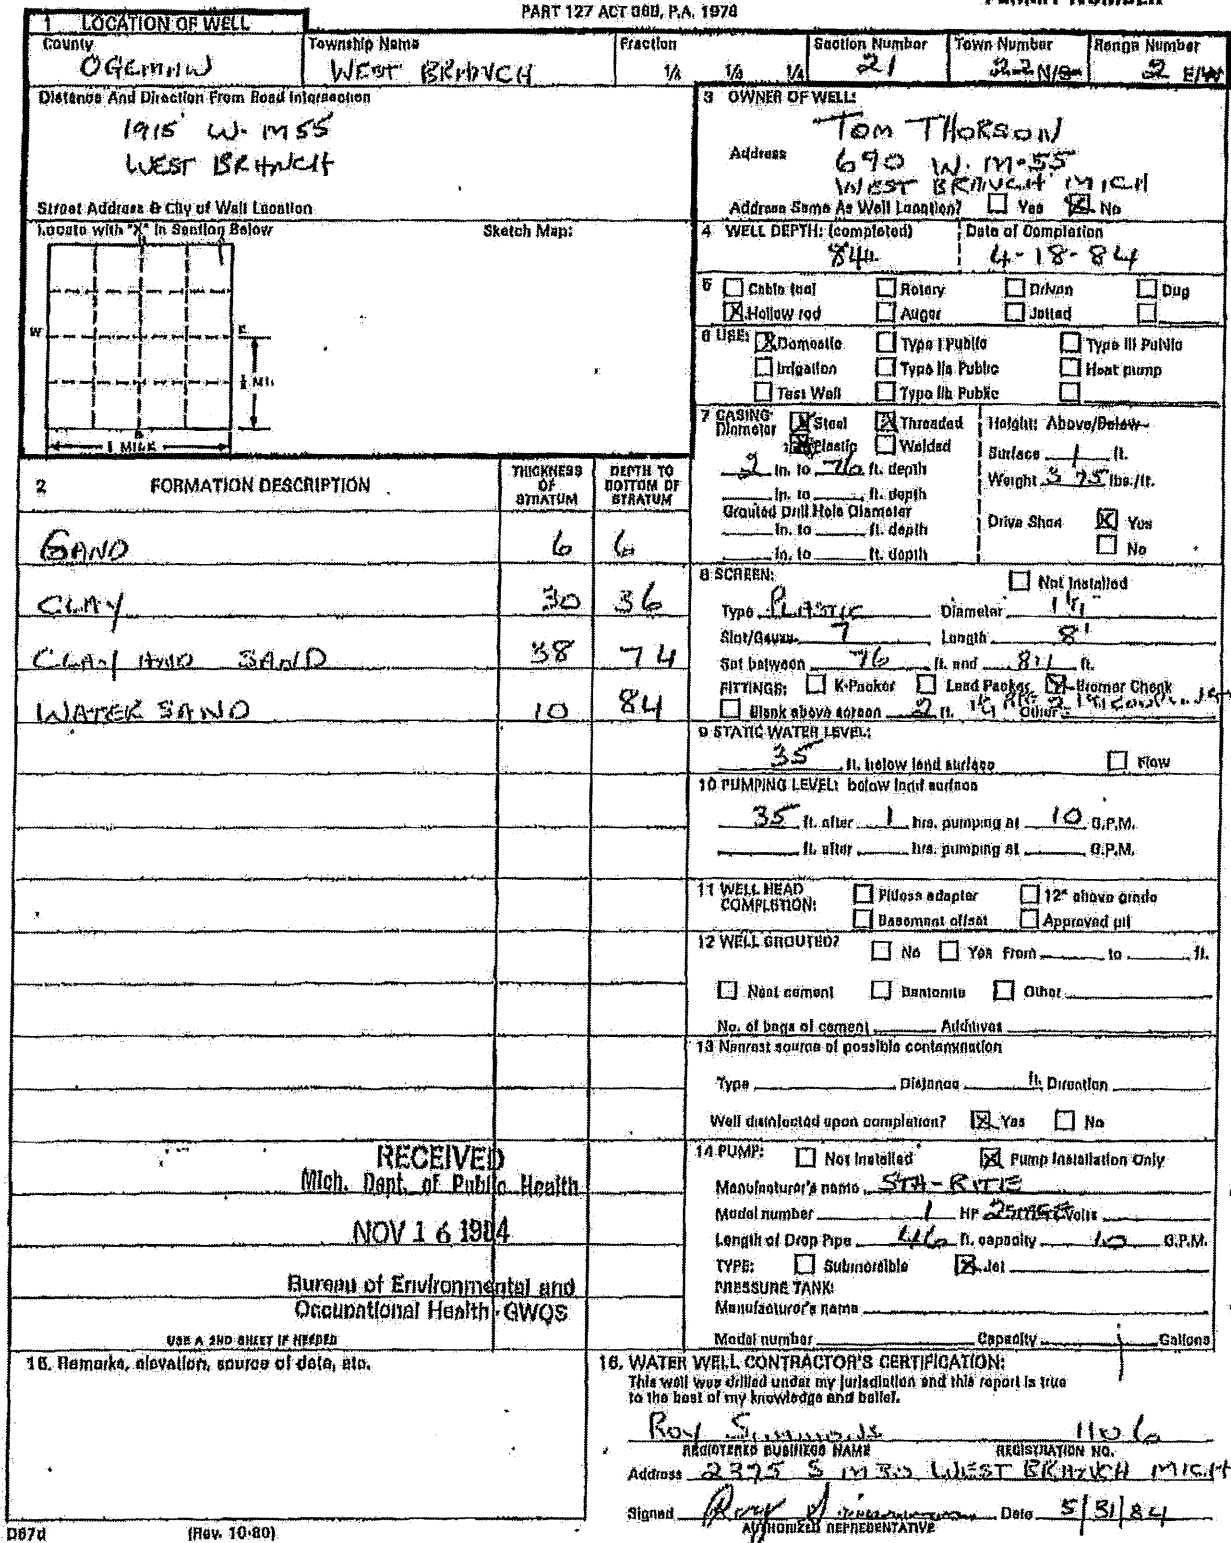 PART 127 ACT 368, P.A. 1978
PERMIT NUMBER
1 LOCATION OF WELL
County
Township Name
Fraction
Section Number
Town Number
Range Number
OGEMAW
WEST BRANCH
1/4 1/4 1/4
21
22 N/S
2 E/W
Distance And Direction From Road Intersection
1915 W. M55
WEST BRANCH
Street Address & City of Well Location
Locate with "X" in Section Below
Sketch Map:
W
E
1/2 MI.
S
1 MILE
3 OWNER OF WELL:
TOM THORSON
Address 690 W. M-55
WEST BRANCH MICH
Address Same As Well Location? Yes No
4 WELL DEPTH: (completed) Date of Completion
84 ft. 4-18-84
5 Cable tool Rotary Driven Dug
Hollow rod Auger Jetted
6 USE: Domestic Type I Public Type III Public
Irrigation Type IIa Public Heat pump
Test Well Type IIb Public
7 CASING: Steel Threaded Height: Above/Below
Diameter Plastic Welded
Surface 1 ft.
2 in. to 76 ft. depth
Weight 3.75 lbs./ft.
in. to ft. depth
Grouted Drill Hole Diameter
in. to ft. depth
Drive Shoe Yes
in. to ft. depth
No
2 FORMATION DESCRIPTION
THICKNESS OF STRATUM
DEPTH TO BOTTOM OF STRATUM
SAND 6 6
CLAY 30 36
CLAY AND SAND 38 74
WATER SAND 10 84
8 SCREEN: Not Installed
Type PLASTIC Diameter
Slot/Gauze 7 Length 8'
Set between 76 ft. and 84 ft.
FITTINGS: K-Packer Lead Packer Bremer Check
Blank above screen 2 ft. Other
9 STATIC WATER LEVEL:
35 ft. below land surface Flow
10 PUMPING LEVEL: below land surface
35 ft. after 1 hrs. pumping at 10 G.P.M.
ft. after hrs. pumping at G.P.M.
11 WELL HEAD COMPLETION: Pitless adapter 12" above grade
Basement offset Approved pit
12 WELL GROUTED? No Yes From to ft.
Neat cement Bentonite Other
No. of bags of cement Additives
13 Nearest source of possible contamination
Type Distance ft. Direction
Well disinfected upon completion? Yes No
14 PUMP: Not Installed Pump Installation Only
Manufacturer's name STA-RITE
Model number 1 HP Volts
Length of Drop Pipe 46 ft. capacity 10 G.P.M.
TYPE: Submersible Jet
PRESSURE TANK:
Manufacturer's name
Model number Capacity Gallons
RECEIVED
Mich. Dept. of Public Health
NOV 16 1984
Bureau of Environmental and
Occupational Health - GWQS
USE A 2ND SHEET IF NEEDED
15. Remarks, elevation, source of data, etc.
16. WATER WELL CONTRACTOR'S CERTIFICATION:
This well was drilled under my jurisdiction and this report is true
to the best of my knowledge and belief.
Roy Simmons 1106
REGISTERED BUSINESS NAME REGISTRATION NO.
Address 2375 S M30 WEST BRANCH MICH
Signed Roy Simmons Date 5/31/84
AUTHORIZED REPRESENTATIVE
D67d (Rev. 10-80)